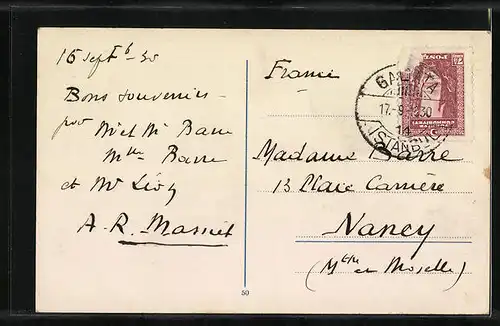 16 Sept 30
Bons souvenirs
pour Mr et Me Barre
Mlle Barre
et Mr Lévy
A. R. Massiet
France
GALATA
17-9-1930
14
ISTANBUL
Madame Barre
13 Place Carrière
Nancy
(Mthe et Moselle)
50